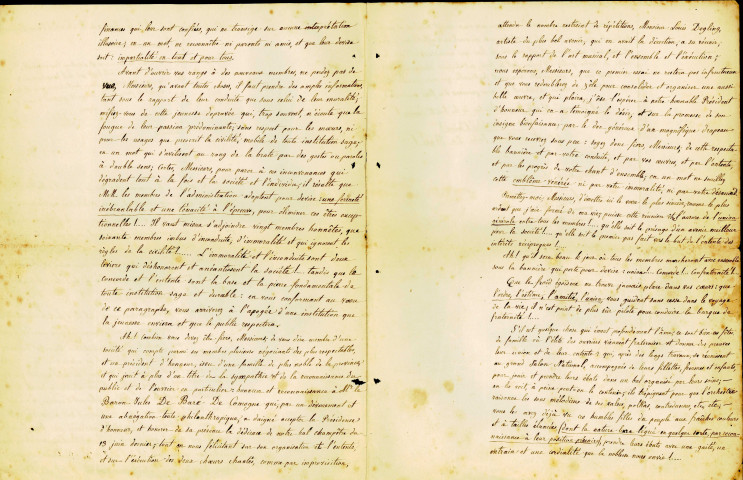 finances qui, leur sont confiées, qui ne transige sur aucune interprétation
illusoire; en un mot, ne reconnaître ni parents ni amis, et que leur devise
soit: impartialité en tout et pour tous.
Avant d'ouvrir vos rangs à des nouveaux membres, ne perdez pas de
vue, Messieurs, qu'avant toute chose, il faut prendre des amples informations,
tant sous le rapport de leur conduite que sous celui de leur moralité;
méfiez-vous de cette jeunesse dépravée qui, trop souvent, n'écoute que la
fougue de leur passion prédominante; sans respect pour les mœurs, ni
pour les usages que prescrit la civilité, mobile de toute institution sage;
en un mot qui s'avilissent au rang de la brute par des gestes ou paroles
à double sens; certes, Messieurs, pour parer à ces inconvenances qui
dégradent tout à la fois et la société et l'individu; il résulte que
MM. les membres de l'administration adoptent pour devise: une fermeté
inébranlable et une ténacité à l'épreuve, pour éliminer ces êtres excep-
tionnelles!... Il vaut mieux s'adjoindre vingt membres honnêtes, que
soixante membres imbus d'inconduite, d'immoralité et qui ignorent les
règles de la civilité!.... L'immoralité et l'inconduite sont deux
leviers qui déshonorent et anéantissent la société!... tandis que la
concorde et l'entente sont la base et la pierre fondamentale de
toute institution sage et durable: en vous conformant au vœu
de ce paragraphe, vous arriverez à l'apogée d'une institution que
la jeunesse enviera et que le public respectera.
Ah! combien vous devez être fiers, Messieurs, de vous dire membre d'une
société qui compte parmi ses membres plusieurs négociants des plus respectables,
et un président d'honneur, issu d'une famille des plus nobles de la province,
et qui jouit à plus d'un titre de la sympathie et de la commisération du
public et de l'ouvrier en particulier: honneur et reconnaissance à Mr le
Baron Jules De Baré De Comogne qui, par un dévouement et
une abnégation toute philanthropique, a daigné accepter la Présidence
d'honneur, et honorer de sa présence la dédicace de notre bal champêtre du
13 juin dernier; tout en nous félicitant sur son organisation et l'entente,
et sur l'exécution des deux chœurs chantés, comme par improvisation,
attendu le nombre restreint de répétitions, Monsieur Louis Dogling,
artiste du plus bel avenir, qui en avait la direction, a su réunir,
sous le rapport de l'art musical, et l'ensemble et l'exécution;
nous espérons, Messieurs, que ce premier essai ne restera pas infructueux
et que vous redoublerez de zèle pour consolider et organiser une aussi
belle œuvre, et qui plaira, j'ose l'espérer à notre honorable Président
d'honneur qui en a témoigné le désir, et sur la promesse de son
insigne bienfaisance par le don généreux d'un magnifique drapeau
que vous recevrez sous peu: soyez donc fiers, Messieurs, de cette respecta-
ble bannière et par votre conduite, et par vos œuvres, et par l'entente,
et par les progrès de votre chant d'ensemble; en un mot ne souillez
cette emblème sacrée; ni par votre immoralité, ni par votre désaccord.
Permettez-moi, Messieurs, d'émettre ici le vœu le plus sincère, comme le plus
ardent que j'aie formé de ma vie; puisse cette réunion être l'aurore de l'union
sincère entre tous les membres!.... qu'elle soit le présage d'un avenir meilleur
pour la société!.... qu'elle soit le premier pas fait vers le but de l'entente des
intérêts réciproques!....
Ah! qu'il sera beau le jour où tous les membres marcheront avec ensemble
sous la bannière qui porte pour devise: union! concorde! confraternité!..
Que le froid égoïsme ne trouve jamais place dans vos cœurs; que
l'ordre, l'estime, l'amitié, l'union, vous guident sans cesse dans le voyage
de la vie; il n'est point de plus sûr pilote pour conduire la barque de
fraternité!....
S'il est quelque chose qui émeut profondément l'âme, ce sont bien ces fêtes
de famille où l'élite des ouvriers viennent fraterniser et donner des preuves
de leur union et de leur entente; qui, après des longs travaux, se réunissent
au grand Salon National, accompagnés de leurs fillettes, femmes et enfants,
pour jouir et prendre leurs ébats dans un bal organisé par leurs soins;
on les voit, à peine peut-on les contenir; ils trépignent pour que l'orchestre
résonne les sons mélodieux de ses valses, polkas, contredanses, etc, etc,
vous les voyez déjà ces humbles filles du peuple aux fraîches couleurs
et à tailles élancées (dont la nature les a légué en quelque sorte, par recon-
naissance à leur position précaire), prendre leurs ébats avec une gaîté, un
entrain et une cordialité que la noblesse nous envie!....